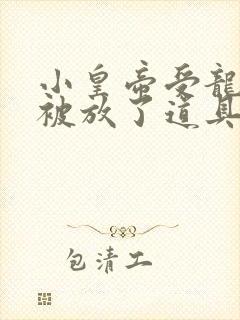 小皇帝受龍
被放了道具
包清工